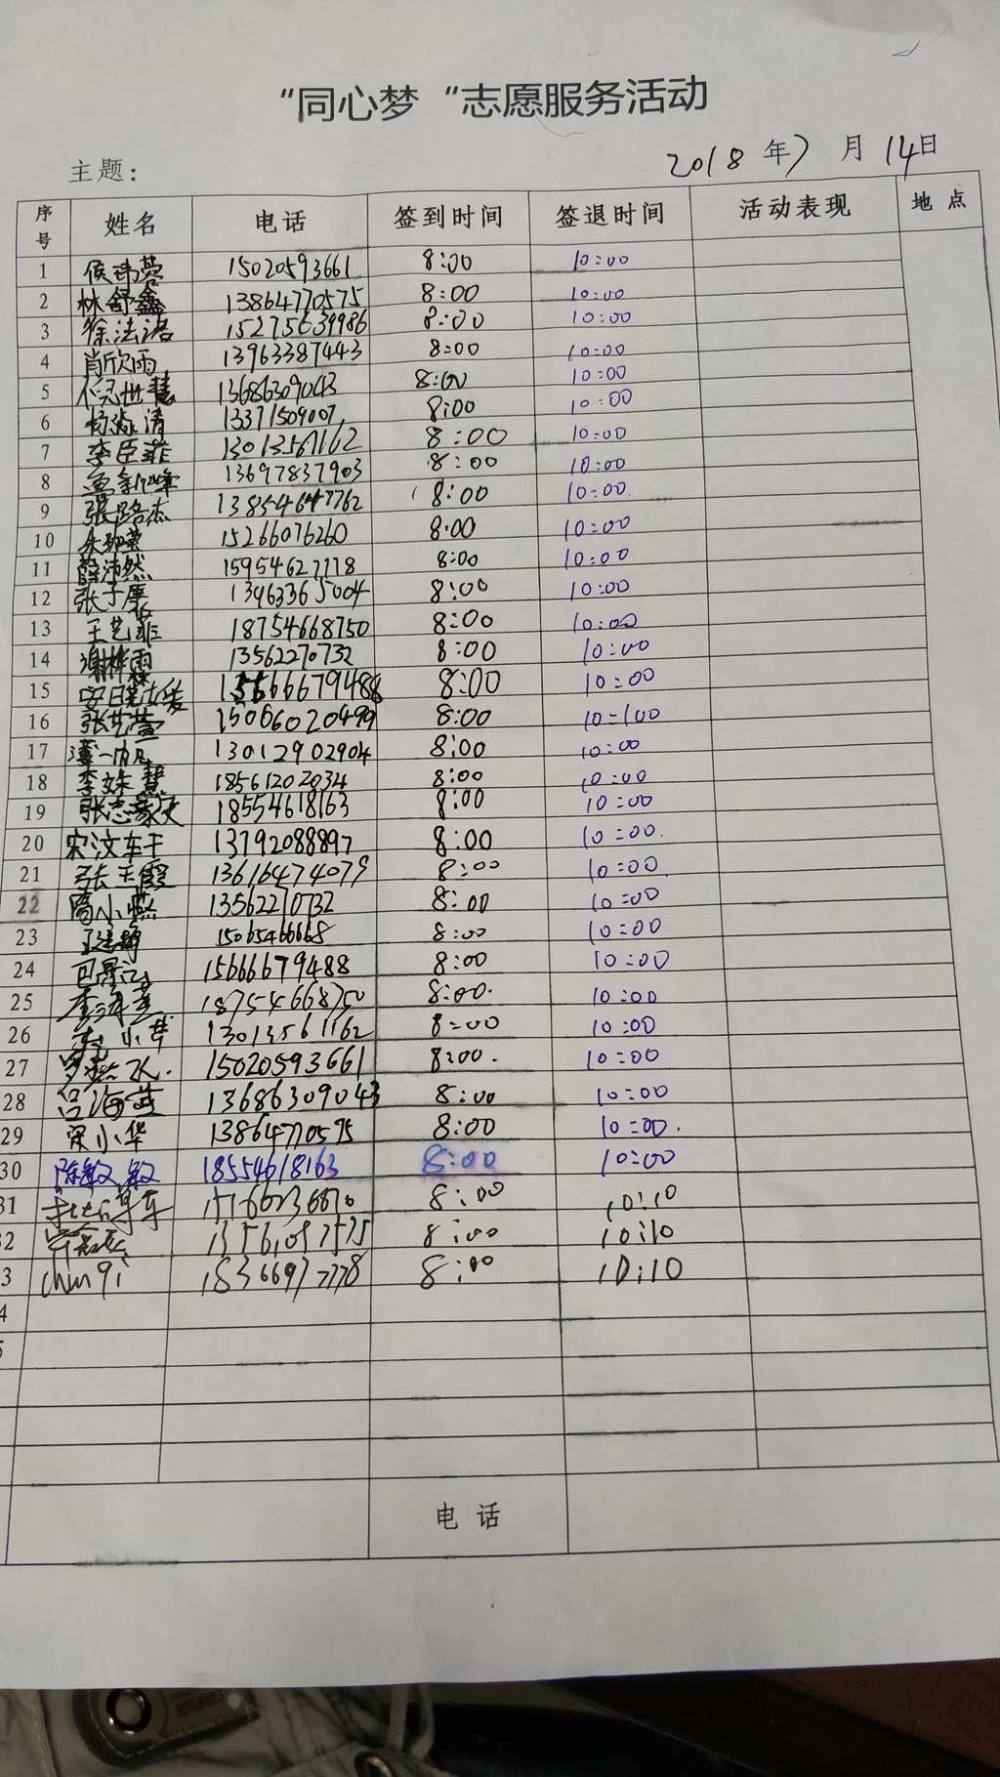 “同心梦“志愿服务活动
主题： 2018年7月14日
序号 姓名 电话 签到时间 签退时间 活动表现 地点
1 侯玮蓉 15020593661 8:00 10:00
2 林舒鑫 13864770575 8:00 10:00
3 徐法洛 15275639986 8:00 10:00
4 肖欣雨 13963387443 8:00 10:00
5 13686309043 8:00 10:00
6 杨淼清 13371509007 8:00 10:00
7 李臣菲 13013561162 8:00 10:00
8 13697837903 8:00 10:00
9 张路杰 8:00 10:00
10 15266076260 8:00 10:00
11 薛沛然 15954627718 8:00 10:00
12 张子康 13963365004 8:00 10:00
13 王艺菲 18754668750 8:00 10:00
14 13562270732 8:00 10:00
15 15666679488 8:00 10:00
16 张艺萱 15066020499 8:00 10:00
17 13012902904 8:00 10:00
18 李姝慧 18561202034 8:00 10:00
19 张志豪 18554618163 8:00 10:00
20 宋汶车干 13792088897 8:00 10:00
21 张玉霞 13616474079 8:00 10:00
22 隋小燕 13562270732 8:00 10:00
23 15065466668 8:00 10:00
24 15666679488 8:00 10:00
25 李海燕 18754668750 8:00 10:00
26 13013561162 8:00 10:00
27 15020593661 8:00 10:00
28 吕海燕 13686309043 8:00 10:00
29 梁小华 13864770575 8:00 10:00
30 陈敏敏 18554618163 8:00 10:00
31 8:00 10:10
2 8:00 10:10
3 8:00 10:10
4
5
电话